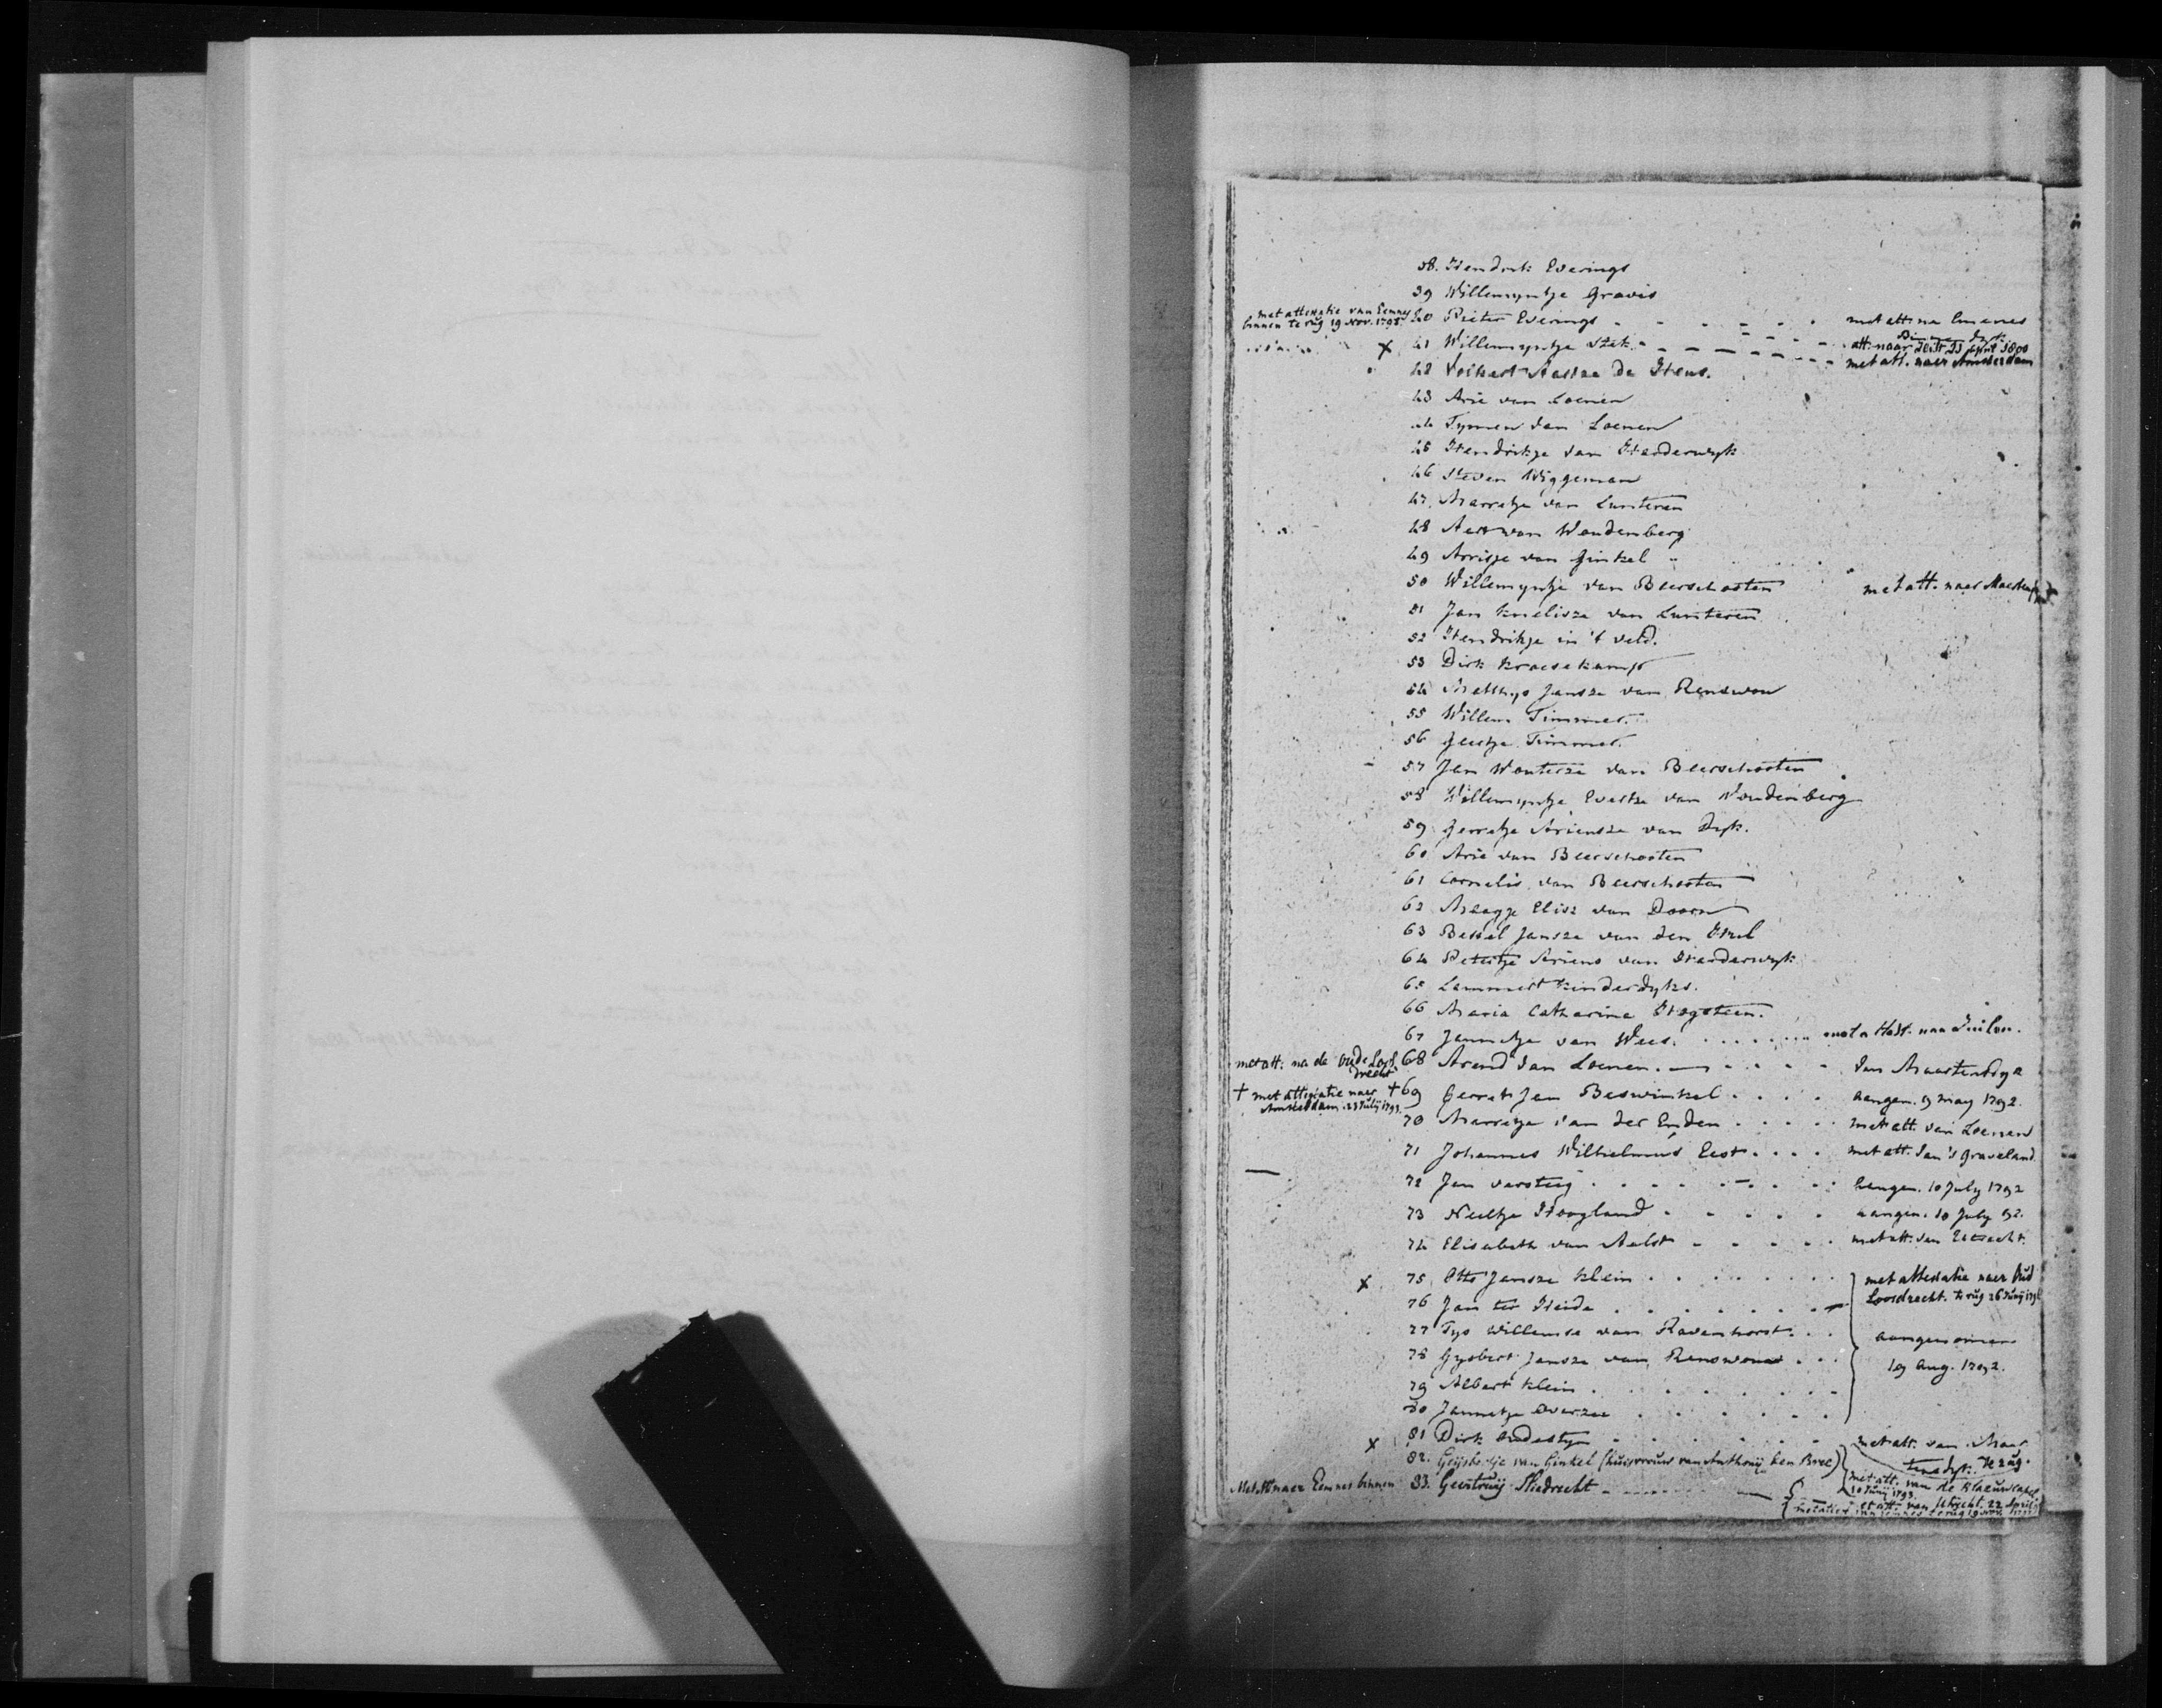 38. Hendrik Everings
39 Willemyntje Gravis
met attestatie van Eemnes binnen te rug 19 Nov. 1795. 40 Pieter Everings - - - - - - met att. na Emenes Binnendyk
x 41 Willemyntje Stek - - - - - - att. naar 21 april 1800
42 Volkert Aartze de Heus. - - - met att. naer Amsterdam
43 Arie van Loenen
44 Tymen van Loenen
45 Hendrikje van Harderwyk
46 Steven Wiggeman
47. Marretje van Lunteren
48 Aert van Woudenberg
49 Arrisje van Ginkel
50 Willemyntje van Beerschooten met att. naer
51 Jan Knelisze van Lunteren
52 Hendrikje in 't veld.
53 Dirk Kroesekamp
54 Matthys Jansze van Renswou
55 Willem Timmer.
56 Geertje Timmer.
57 Jan Wouterze van Beerschooten
58 Willemyntje Evertze van Woudenberg
59 Gerretje Ariensze van Dyk.
60 Arie van Beerschooten
61 Cornelis van Beerschooten
62 Maagje Elisz van Doorn
63 Bessel Jansze van den
64 Petertje Ariens van Harderwyk
65 Lammert Kinderdyks.
66 Maria Catharina Hogsteen.
67 Jannetje van Wees. . . . . . . . met attest. naa
met att. na de Oude Loosdrecht 68 Arend van Loenen. — . . . . van Maartensdyk
† met attestatie naer Amsterdam. 23 Julij 1793. † 69 Gerret Jan Beswinkel . . . . aangen. 9 may 1792.
70 Marretje van der Enden . . . . . met att. van Loenen
71 Johannes Wilhelmus Eest . . . . met att. van 's Graveland.
— 72 Jan Versteeg . . . . . . . aangen. 10 July 1792
73 Neeltje Hoogland . . . . . aangen. 10 July 92.
74 Elisabeth van Aelst . . . . . met att. van Utrecht.
x 75 Otto Jansze Klein . . . . . . . met attestatie naer Oud Loosdrecht. te rug 26 Junij
76 Jan ter Heide . . . . . . .
77 Tys Willemse van Ravenhorst . . . aangenomen
78 Gysbert Jansze van Renswoude . . . 19 Aug. 1792.
79 Albert Klein . . . . . . . .
80 Jannetje Overzee . . . . . .
x 81 Dirk Oudestyn . . . . . . . met att. van Maartensdyk. te rug.
82. Geijsbertje van Ginkel (huisvrouw van Anthonij ten Bree) met att. van de Blaeuwcapel 10 Junij 1793.
Met Att naer Eemnes binnen 83. Geertruij Sliedrecht - - - - — met att. van Utrecht. 22 April